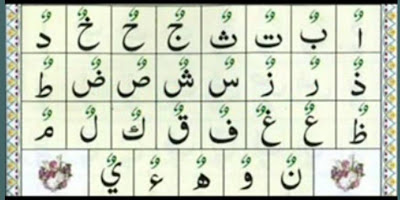 اٌ بٌ تٌ ثٌ جٌ حٌ خٌ دٌ
ذٌ رٌ زٌ سٌ شٌ صٌ ضٌ طٌ
ظٌ عٌ غٌ فٌ قٌ كٌ لٌ مٌ
نٌ وٌ هٌ ءٌ يٌ